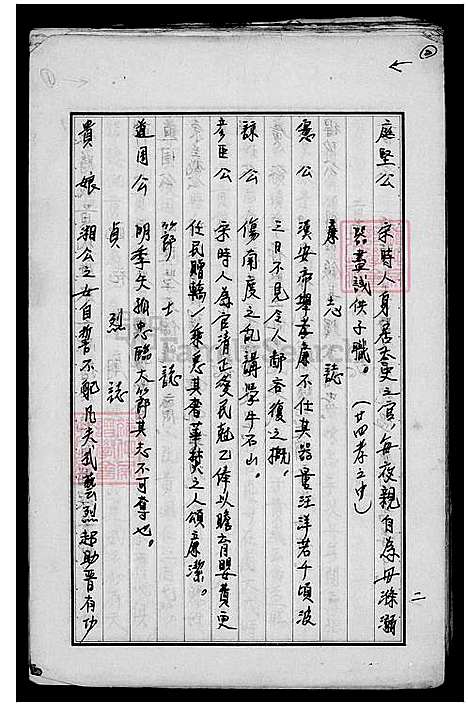 庭堅公 宋時人身居太吏之官,每夜親自為母滌溺
器盡誠供子職。(廿四孝之中)
廉 誌
憲公 漢安帝舉孝廉不仕其器量汪洋若千頃波
三日不見令人鄙吝復之概。
諒公 傷南度之乱講學牛石山。
彥臣公 宋時人為官清正愛民尅乙俸以贍育嬰貴更
任民贈轎一乘悉其奢華焚之人頌廉潔。
節士誌
道周公 明季矢孤忠臨大節其志不可奪也。
貞烈誌
貴娘 湘公之女自誓不配凡夫武藝烈起助晉有功
二